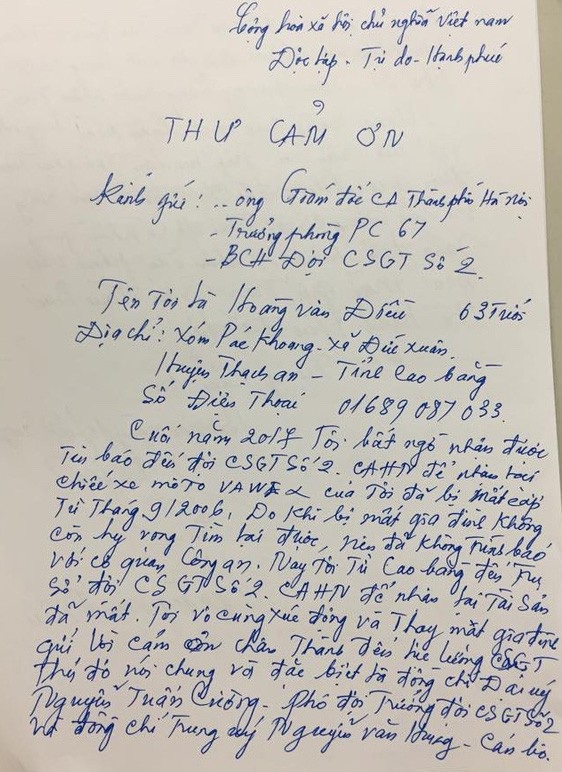 Cộng hòa xã hội chủ nghĩa Việt nam
Độc lập - Tự do - Hạnh phúc
THƯ CẢM ƠN
Kính gửi: .. ông Giám đốc CA Thành phố Hà Nội
- Trưởng phòng PC 67
- BCH Đội CSGT Số 2
Tên Tôi là Hoàng văn Điều 63 Tuổi
Địa chỉ: Xóm Pác Khoang - Xã Đức Xuân
Huyện Thạch an - Tỉnh Cao bằng
Số Điện Thoại 01689 087 033.
Cuối năm 2017 Tôi bất ngờ nhận được
Tin báo đến đội CSGT Số 2. CAHN để nhận lại
chiếc xe môTô WAVE α của Tôi đã bị mất cắp
Từ Tháng 9/2006, Do khi bị mất gia đình không
còn hy vọng Tìm lại được, nên đã không trình báo
với cơ quan Công an. Nay Tôi Từ Cao bằng đến Trụ
Sở đội CSGT Số 2. CAHN để nhận lại Tài Sản
đã mất. Tôi vô cùng xúc động và Thay mặt gia đình
gửi lời cảm ơn chân Thành đến lực lượng CSGT
thủ đô nói chung và đặc biệt là đồng chí Đại úy
Nguyễn Tuấn Cường - Phó đội Trưởng đội CSGT Số 2
và đồng chí Trung úy Nguyễn văn Hưng - Cán bộ.